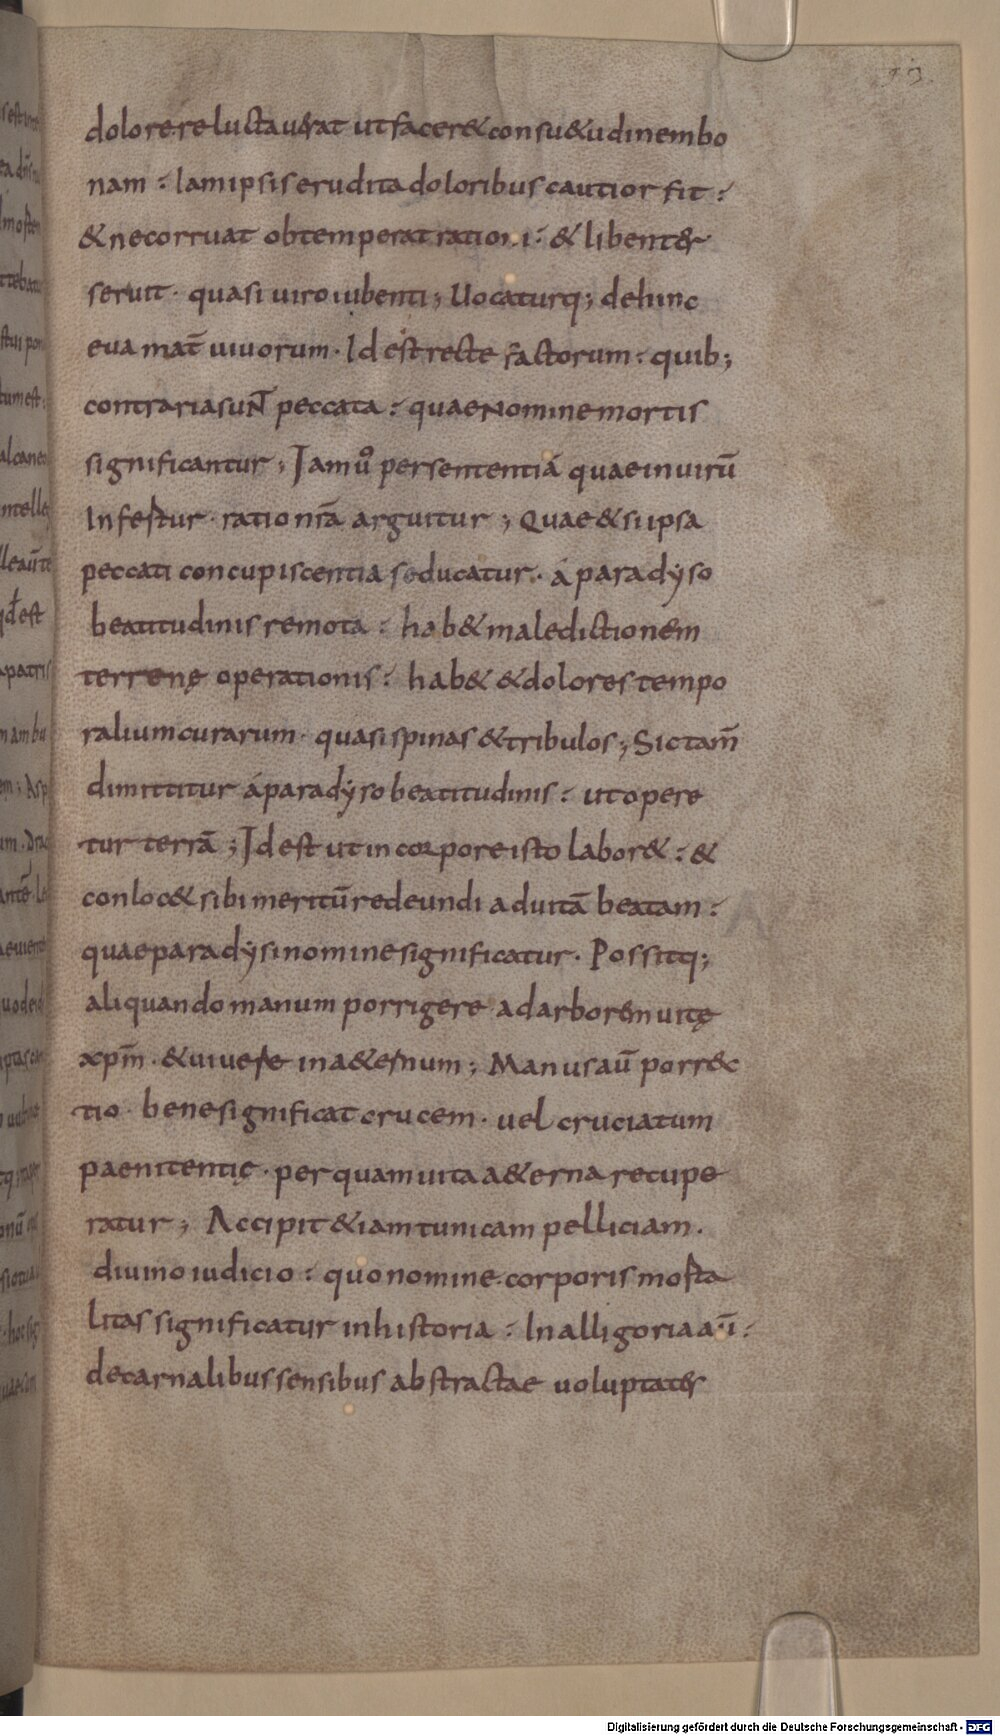 93.
dolore reluctauerat ut facer& consu&udinem bo
nam : Iam ipsis erudita doloribus cautior fit :
& ne corruat obtemperat rationi : & libenter
seruit · quasi uiro iubenti ; Uocaturq; dehinc
eua mat̄ uiuorum · Id est recte factorum : quib;
contraria sunt peccata : quae nomine mortis
significantur ; Iam uͦ per sententiā quae in uirū
Infertur · ratio nr̄a arguitur ; Quae & si ipsa
peccati concupiscentia seducatur · á paradyso
beatitudinis remota : hab& maledictionem
terrenę operationis : hab& & dolores tempo
ralium curarum · quasi spinas & tribulos ; Sic tam̄
dimittitur á paradyso beatitudinis : ut opere
tur terrā ; Id est ut in corpore isto labor& : &
conloc& sibi meritū redeundi ad uitā beatam :
quae paradysi nomine significatur · Possitq;
aliquando manum porrigere ad arborem uitę
xpm̄ · & uiuere in a&ernum ; Manus aū porrec
tio · bene significat crucem · uel cruciatum
paenitentię · per quam uita a&erna recupe
ratur ; Accipit & iam tunicam pelliciam ·
diuino iudicio : quo nomine corporis morta
litas significatur in historia : In alligoria aū :
de carnalibus sensibus abstractae uoluptates
Digitalisierung gefördert durch die Deutsche Forschungsgemeinschaft - DFG